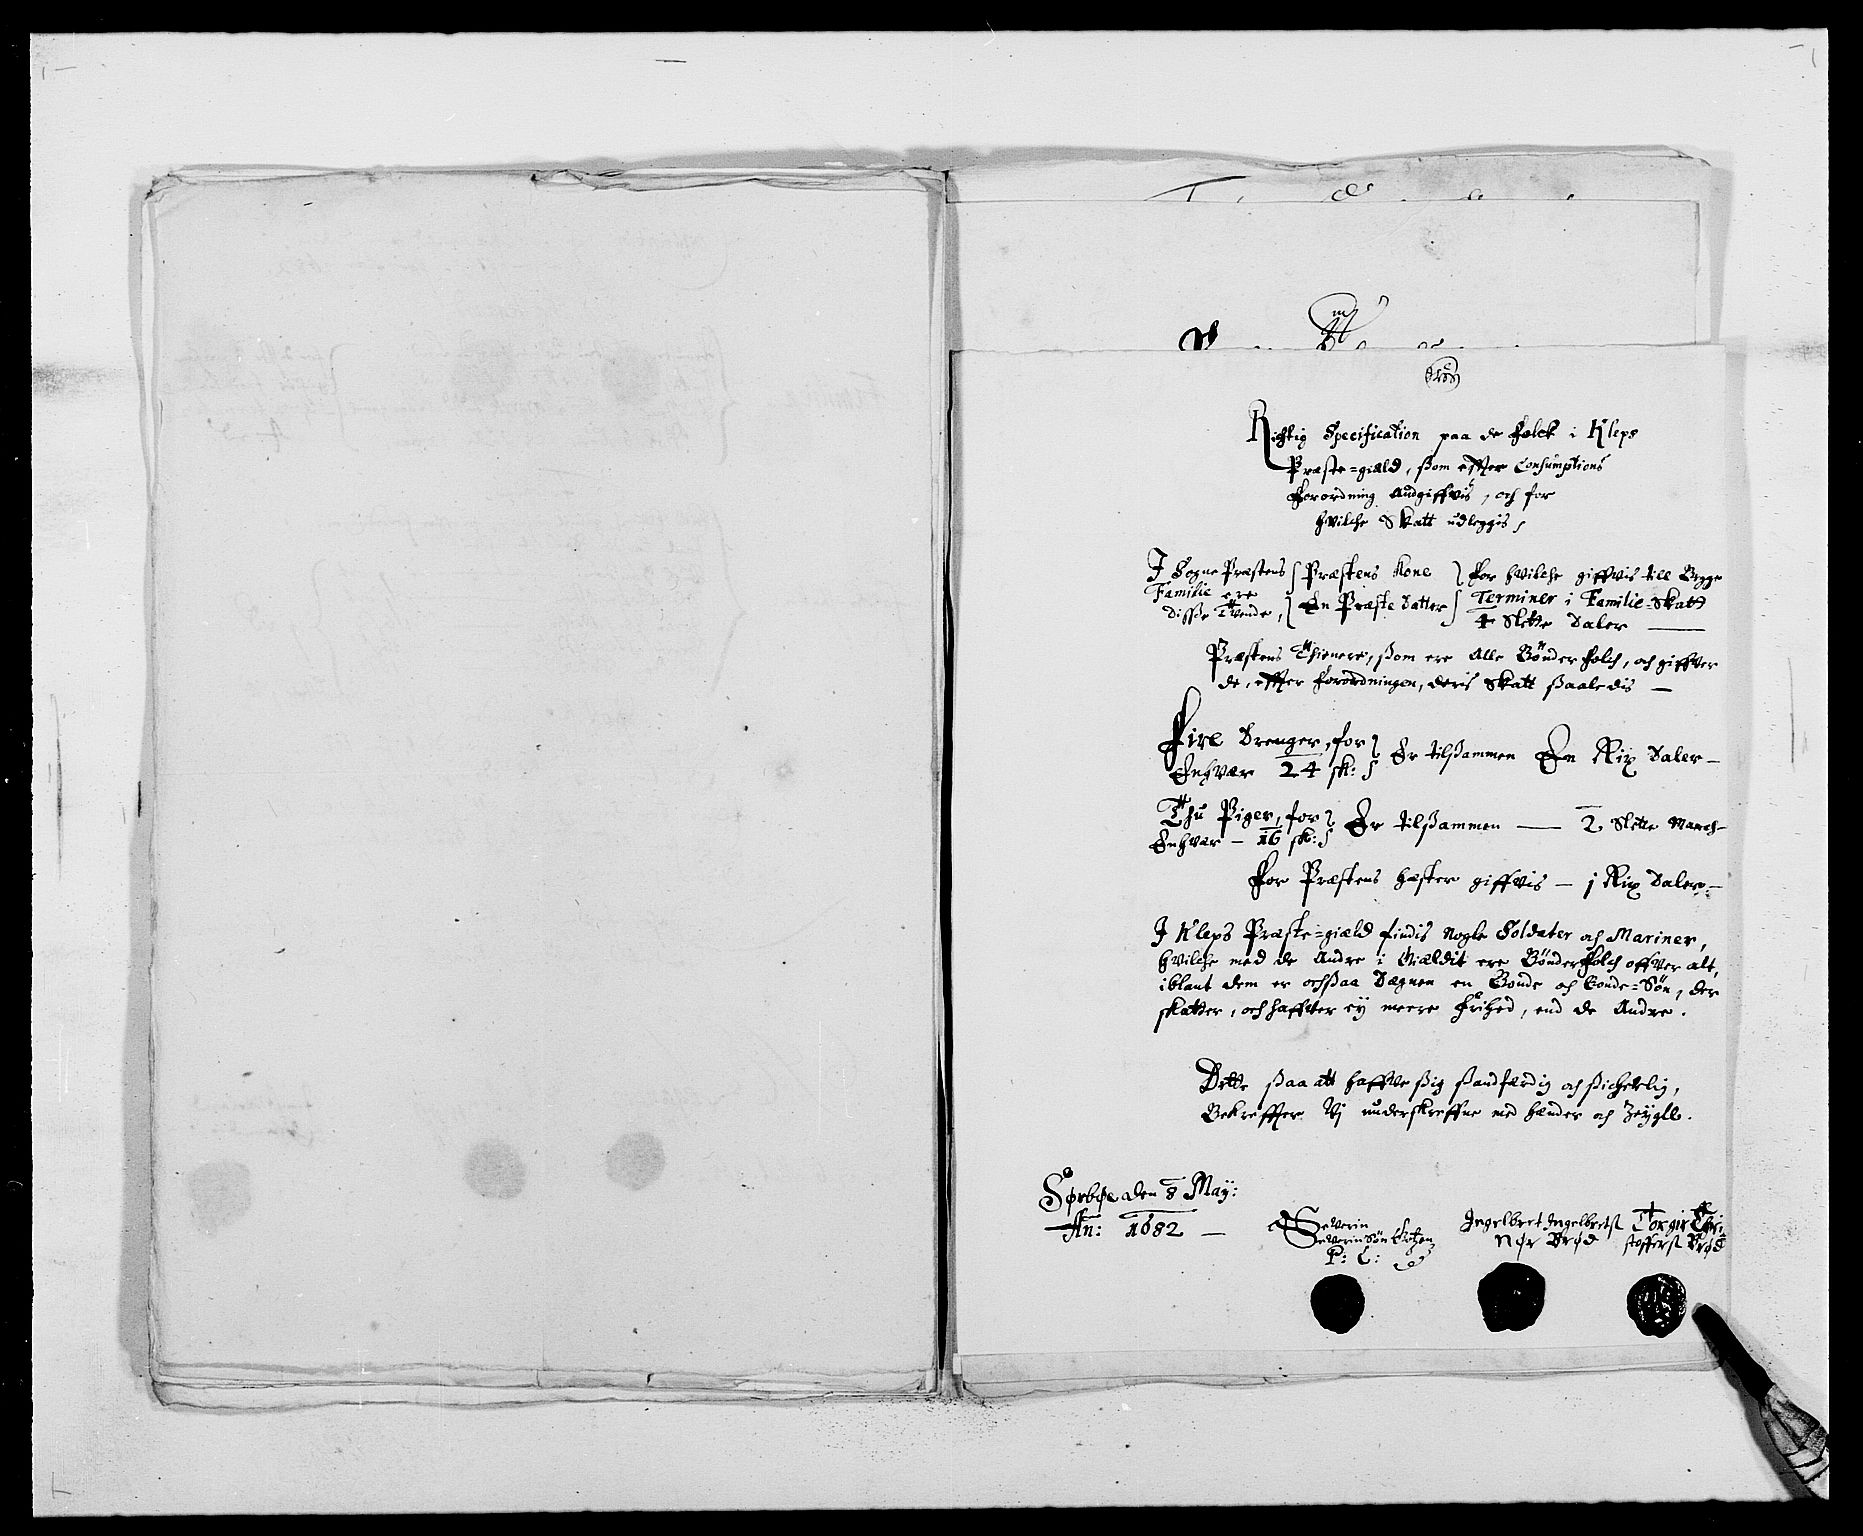 Richtig Specification paa de folck i Kleps
Præste-giæld, ßom effter Consumptions
forordning Andgiffvis, och for
hvilche Skatt udleggis,
I Sogne Præstens Familie ere disße Tvende,
Præstens Kone
En Præste Datter
for hvilche giffvis till Begge
Terminer i Familie-Skatt
4 Slette Daler
Præstens Thienere, ßom ere Alle Bønder folch, och giffver
de, effter forordningen, deris Skatt ßaaledis —
Fire Drenger, for
Enhvær 24 sk:
Er tilßammen En Rix Daler —
Thu Piger, for
Enhvær — 16 sk:
Er tilßammen — 2 Slette March —
For Præstens hæster giffvis — j Rix Daler —
I Kleps Præste-giæld findis Nogle Soldater och Mariner,
hvilche med de Andre i Giældit ere Bønderfolch offver alt,
iblant dem er ochßaa Degnen en Bonde och Bonde-Søn, der
skatter, och haffver ey meere frihed, end de Andre.
Dette ßaa att haffve ßig ßandfærdig och ßicherlig,
Bekreffter Vj underskreffne med hænder och Zeygll.
Sørbøe den 8 May:
An: 1682 —
Severin
SeverinSøn
P: L:
Ingelbret Ingelbretß
Nør Brød
Torgir Chri
stofferß Brød